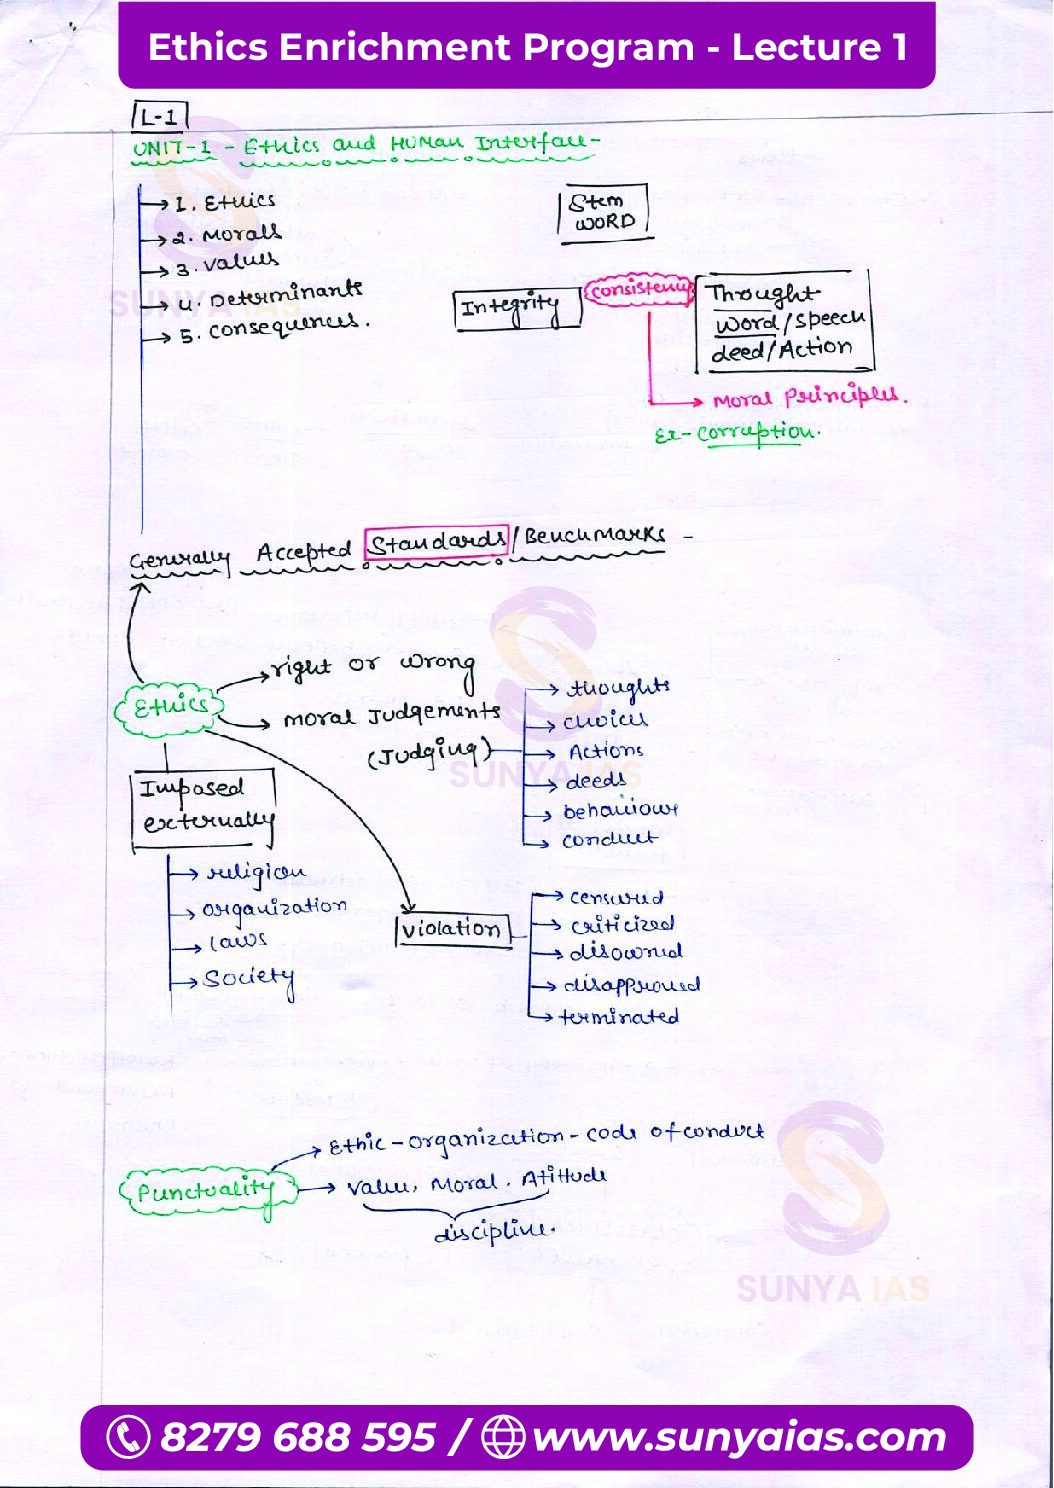 Ethics Enrichment Program - Lecture 1
L-1
UNIT-1 - Ethics and Human Interface-
1. Ethics
2. Morals
3. values
4. Determinants
5. consequences.
Stem
WORD
Integrity
consistency
Thought
word/speech
deed/Action
Moral Principles.
Ex- corruption.
Generally Accepted Standards/Benchmarks -
Ethics
right or wrong
moral Judgements
(Judging)
thoughts
choices
Actions
deeds
behaviour
conduct
Imposed
externally
religion
organization
laws
Society
violation
censured
criticized
disowned
disapproved
terminated
Punctuality
Ethic-organization-code of conduct
Value, Moral, Atittude
discipline.
SUNYA IAS
SUNYA IAS
SUNYA IAS
8279 688 595 / www.sunyaias.com